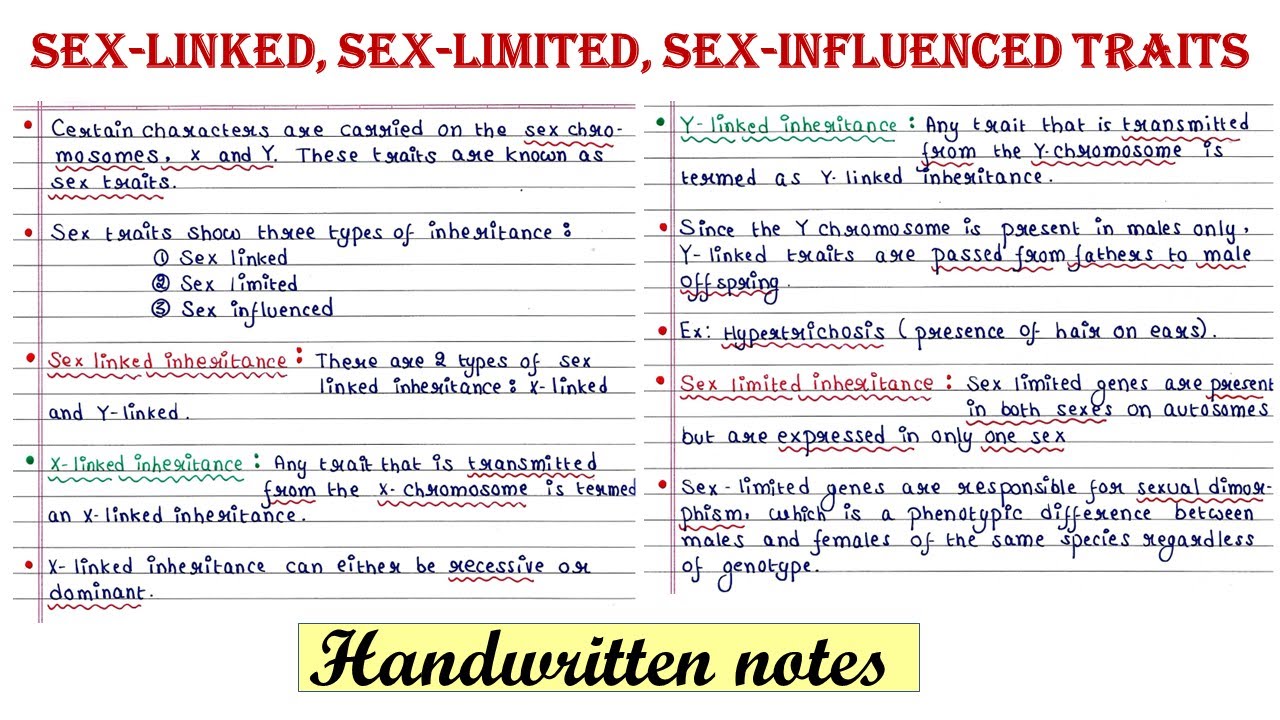 SEX-LINKED, SEX-LIMITED, SEX-INFLUENCED TRAITS
• Certain characters are carried on the sex chro-
mosomes, x and Y. These traits are known as
sex traits.
• Sex traits show three types of inheritance :
① Sex linked
② Sex limited
③ Sex influenced
• Sex linked inheritance : There are 2 types of sex
linked inheritance : X-linked
and Y-linked.
• X-linked inheritance : Any trait that is transmitted
from the X-chromosome is termed
an X-linked inheritance.
• X-linked inheritance can either be recessive or
dominant.
• Y-linked inheritance : Any trait that is transmitted
from the Y-chromosome is
termed as Y-linked inheritance.
• Since the Y chromosome is present in males only,
Y-linked traits are passed from fathers to male
offspring.
• Ex: Hypertrichosis (presence of hair on ears).
• Sex limited inheritance : Sex limited genes are present
in both sexes on autosomes
but are expressed in only one sex
• Sex-limited genes are responsible for sexual dimor-
phism, which is a phenotypic difference between
males and females of the same species regardless
of genotype.
Handwritten notes